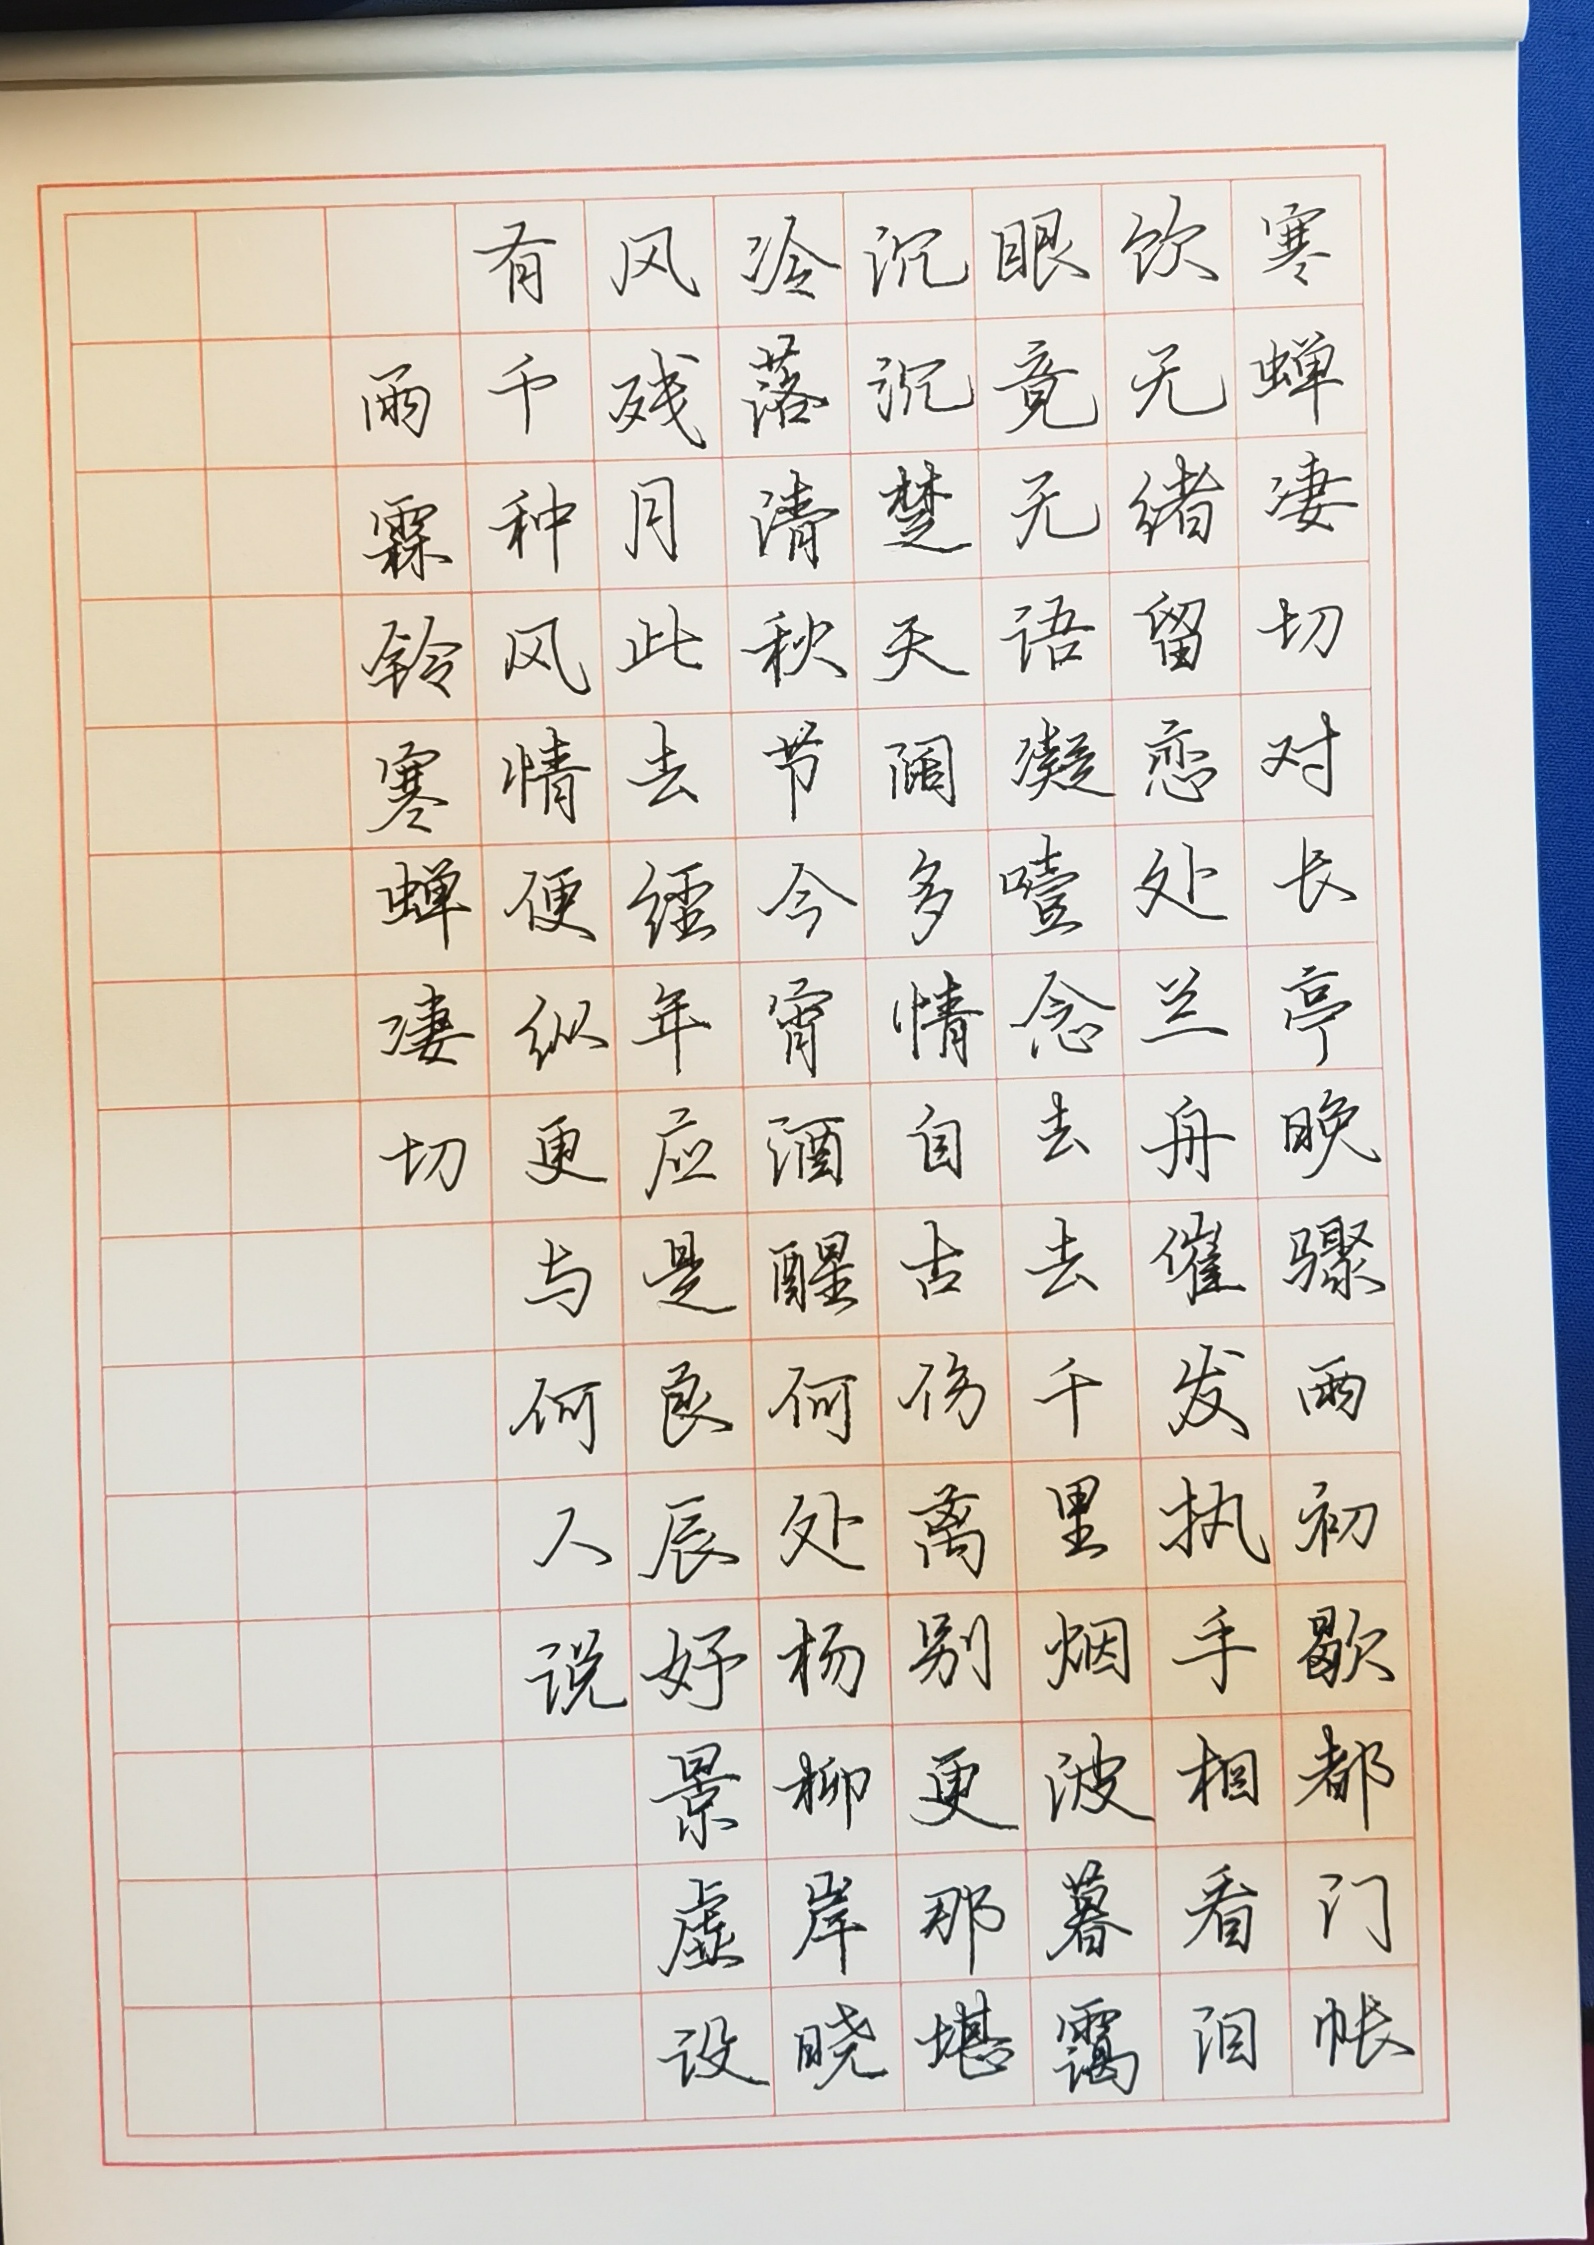 寒蝉凄切对长亭晚骤雨初歇都门帐
饮无绪留恋处兰舟催发执手相看泪
眼竟无语凝噎念去去千里烟波暮霭
沉沉楚天阔多情自古伤离别更那堪
冷落清秋节今宵酒醒何处杨柳岸晓
风残月此去经年应是良辰好景虚设
有千种风情便纵更与何人说
雨霖铃寒蝉凄切